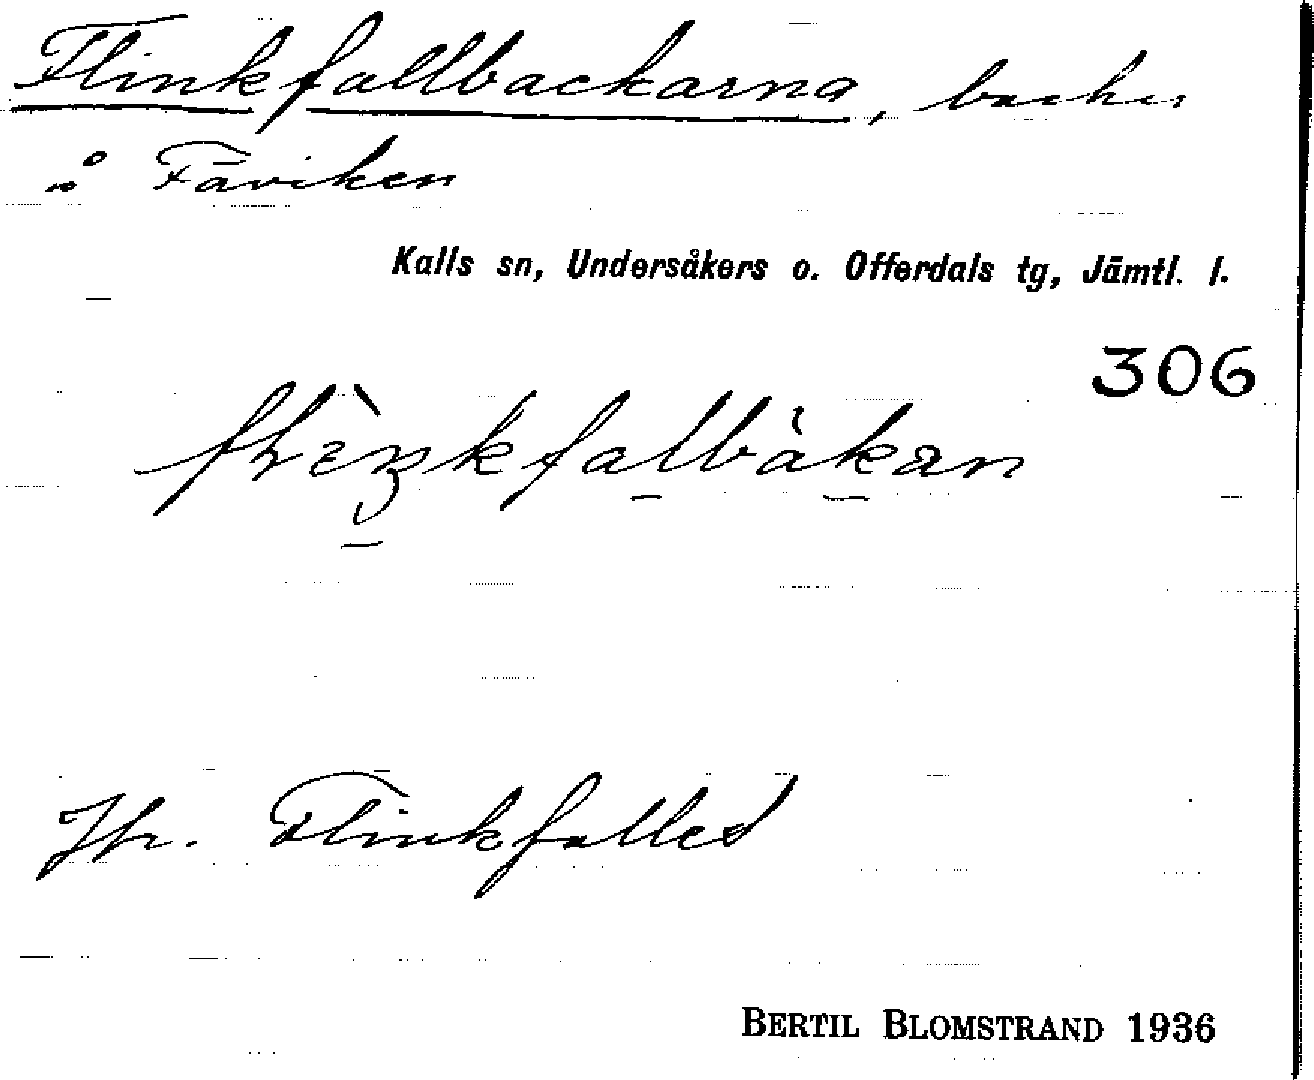 Flinkfallbackarna, backar
å Fäviken
Kalls sn, Undersåkers o. Offerdals tg, Jämtl. l.
306
Jfr. Flinkfallet
BERTIL BLOMSTRAND 1936